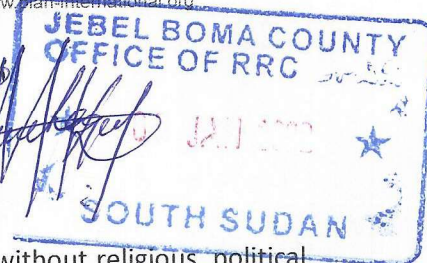 www.plan-international.org
JEBEL BOMA COUNTY
OFFICE OF RRC
JAN
SOUTH SUDAN
without religious, political